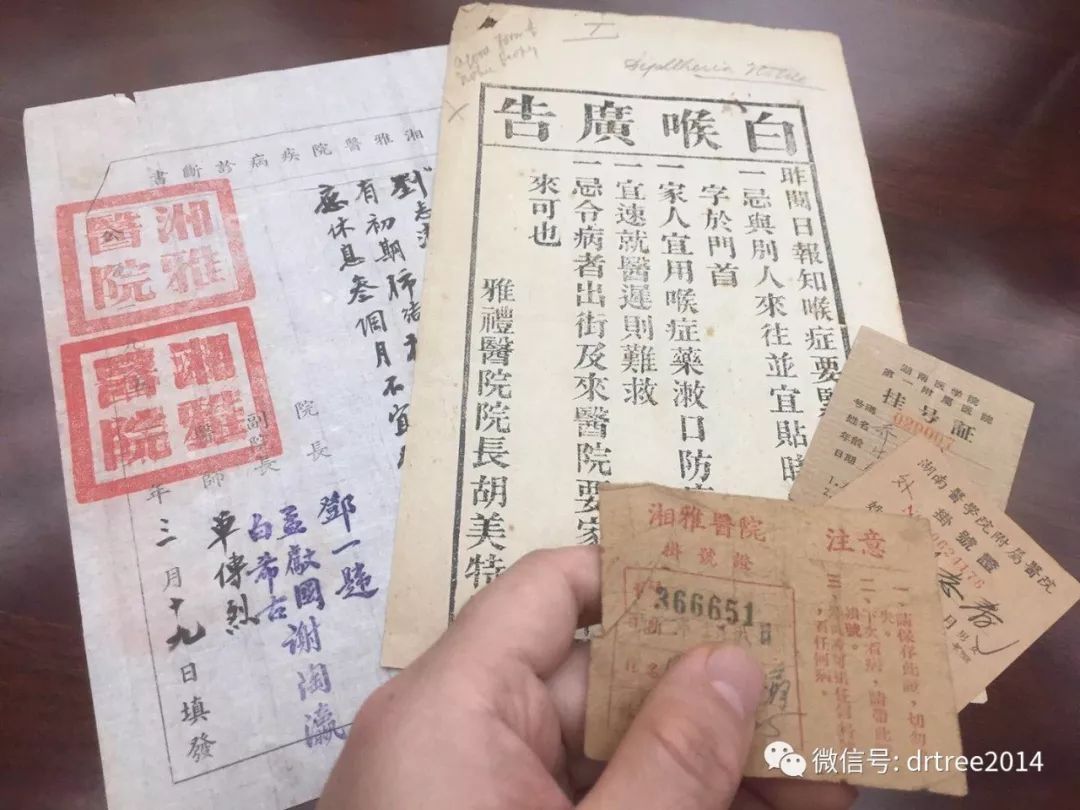 湘雅醫院疾病診斷書
有初期肺
應休息叁個月不宜
院長
副院長
醫師
鄧一韙
孟獻國 謝陶瀛
白希古
卓傳烈
年三月十九日填發
湘雅
醫院
湘雅
醫院
Diphtheria Notice
白喉廣告
昨閱日報知喉症要緊
一忌與別人來往並宜貼時
字於門首
一家人宜用喉症藥漱口防
一宜速就醫遲則難救
一忌令病者出街及來醫院要家
來可也
雅禮醫院院長胡美特
湖南医学院
第一附属医院
挂号証
号碼 020007
姓名
年齡
日期
湖南醫學院附屬醫院
掛號證
湘雅醫院
掛號證
366651
注意
一、請保存此證，切勿
失。
二、下次看病，請帶此
微信号: drtree2014